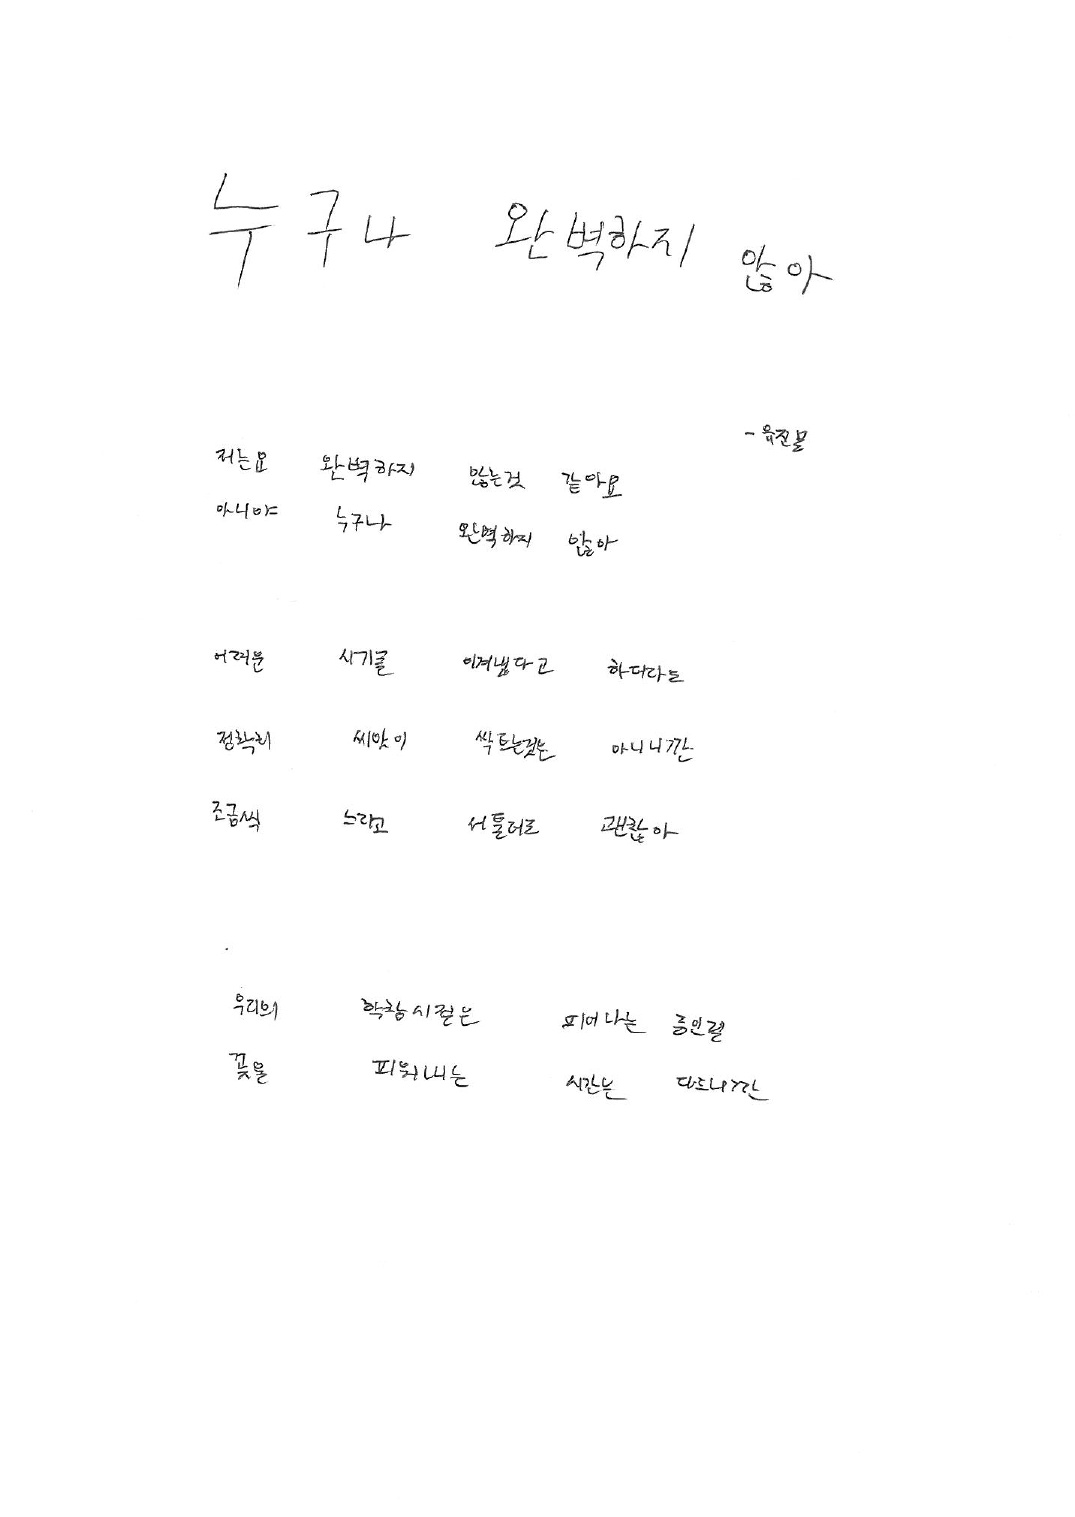 누구나 완벽하지 않아
저는요 완벽하지 않는것 같아요
아니야 누구나 완벽하지 않아
어려운 시기를 이겨냈다고 하더라도
정확히 씨앗이 싹트는것은 아니니깐
조금씩 느리고 서툴더라도 괜찮아
우리의 학창시절은 피어나는 중인걸
꽃을 피워내는 시간은 다르니깐